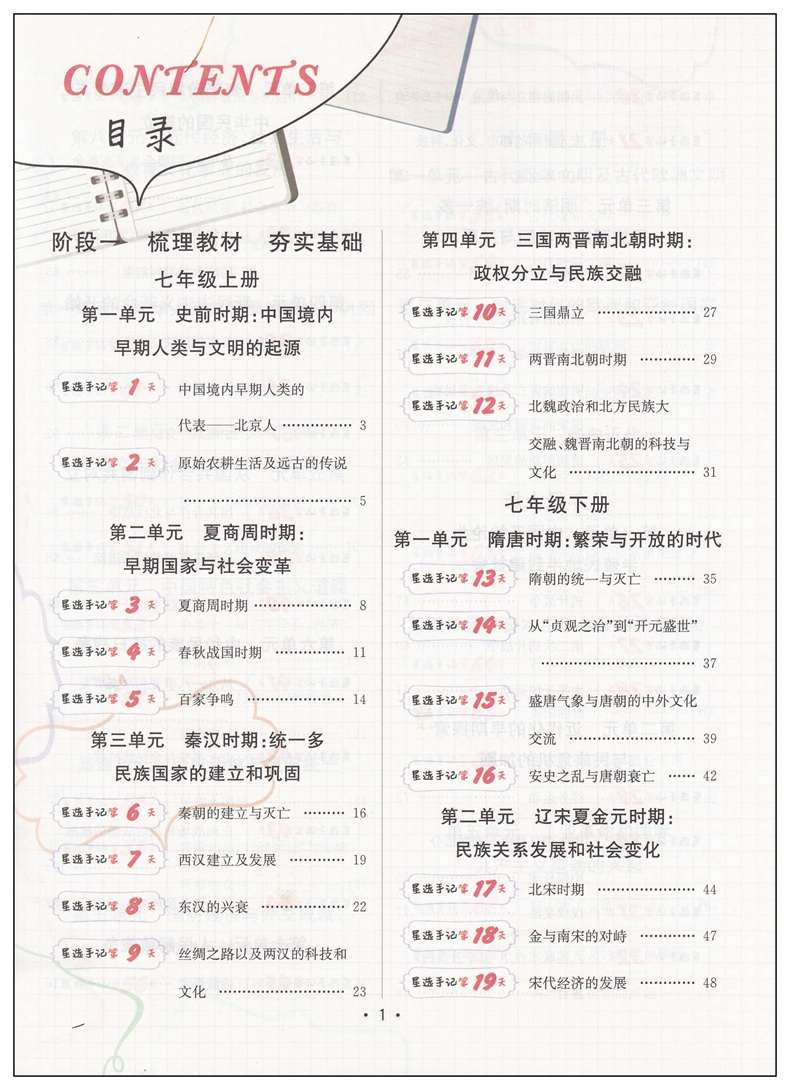 CONTENTS
目录
阶段一 梳理教材 夯实基础
七年级上册
第一单元 史前时期:中国境内
早期人类与文明的起源
星选手记第1天 中国境内早期人类的
代表——北京人 …………… 3
星选手记第2天 原始农耕生活及远古的传说
……………………………… 5
第二单元 夏商周时期:
早期国家与社会变革
星选手记第3天 夏商周时期 ………………… 8
星选手记第4天 春秋战国时期 …………… 11
星选手记第5天 百家争鸣 ………………… 14
第三单元 秦汉时期:统一多
民族国家的建立和巩固
星选手记第6天 秦朝的建立与灭亡 ……… 16
星选手记第7天 西汉建立及发展 ………… 19
星选手记第8天 东汉的兴衰 ……………… 22
星选手记第9天 丝绸之路以及两汉的科技和
文化 ……………………… 23
第四单元 三国两晋南北朝时期:
政权分立与民族交融
星选手记第10天 三国鼎立 ………………… 27
星选手记第11天 两晋南北朝时期 ………… 29
星选手记第12天 北魏政治和北方民族大
交融、魏晋南北朝的科技与
文化 ……………………… 31
七年级下册
第一单元 隋唐时期:繁荣与开放的时代
星选手记第13天 隋朝的统一与灭亡 ……… 35
星选手记第14天 从“贞观之治”到“开元盛世”
…………………………… 37
星选手记第15天 盛唐气象与唐朝的中外文化
交流 ……………………… 39
星选手记第16天 安史之乱与唐朝衰亡 …… 42
第二单元 辽宋夏金元时期:
民族关系发展和社会变化
星选手记第17天 北宋时期 ………………… 44
星选手记第18天 金与南宋的对峙 ………… 47
星选手记第19天 宋代经济的发展 ………… 48
• 1 •